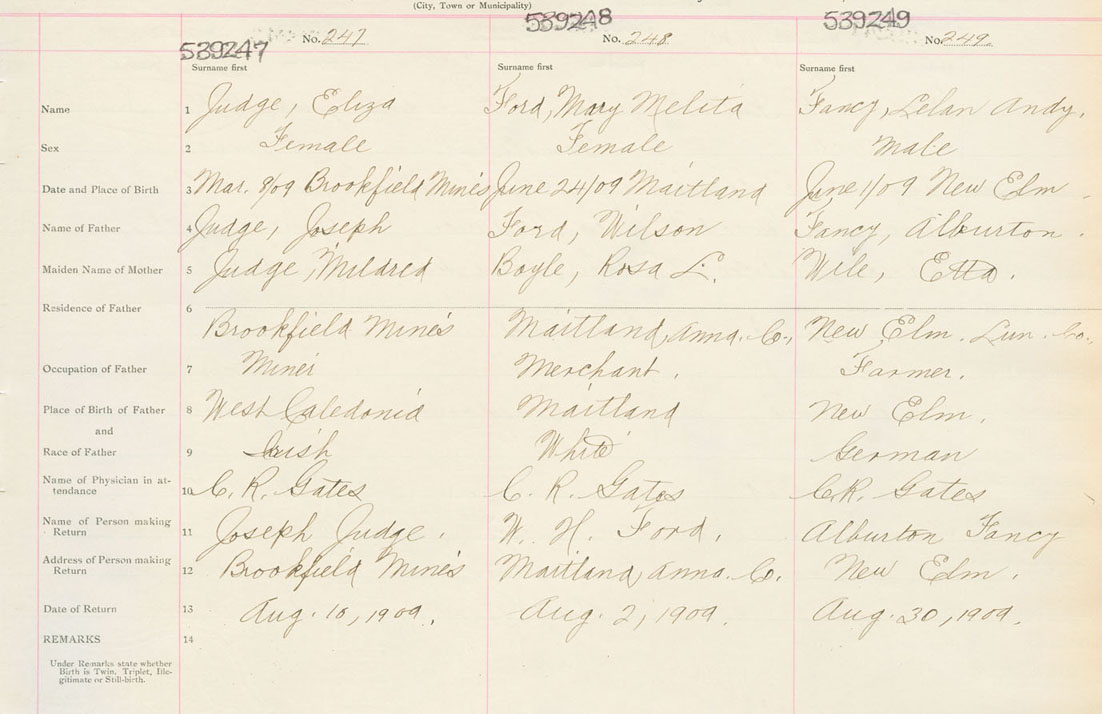 (City, Town or Municipality)
539247 No. 247 539248 No. 248 539249 No. 249.
Surname first Surname first Surname first
Name 1 Judge, Eliza Ford, Mary Melita Fancy, Lelan Andy.
Sex 2 Female Female Male
Date and Place of Birth 3 Mar. 8/09 Brookfield Mines June 24/09 Maitland June 1/09 New Elm
Name of Father 4 Judge, Joseph Ford, Wilson Fancy, Alburton.
Maiden Name of Mother 5 Judge, Mildred Boyle, Rosa L. Wile, Etta.
Residence of Father 6
Brookfield Mines Maitland, Anna. Co., New Elm. Lun. Co.,
Occupation of Father 7 Miner Merchant. Farmer.
Place of Birth of Father 8 West Caledonia Maitland New Elm.
and
Race of Father 9 Irish White German
Name of Physician in at-
tendance 10 C. R. Gates C. R. Gates C.R. Gates
Name of Person making
Return 11 Joseph Judge. W. H. Ford. Alburton Fancy
Address of Person making
Return 12 Brookfield Mines Maitland, Anna. Co. New Elm.
Date of Return 13 Aug. 10, 1909. Aug. 2, 1909. Aug. 30, 1909.
REMARKS 14
Under Remarks state whether
Birth is Twin, Triplet, Ille-
gitimate or Still-birth.